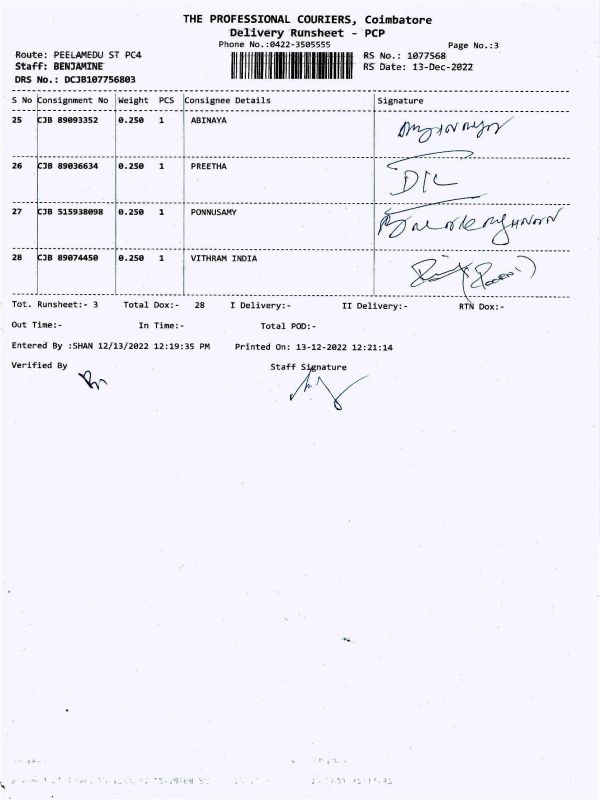 THE PROFESSIONAL COURIERS, Coimbatore
Delivery Runsheet - PCP
Phone No.:0422-3505555
Page No.:3
Route: PEELAMEDU ST PC4
RS No.: 1077568
Staff: BENJAMINE
RS Date: 13-Dec-2022
DRS No.: DCJB107756803
S No Consignment No Weight PCS Consignee Details Signature
25 CJB 89093352 0.250 1 ABINAYA
26 CJB 89036634 0.250 1 PREETHA
27 CJB 515938098 0.250 1 PONNUSAMY
28 CJB 89074450 0.250 1 VITHRAM INDIA
Tot. Runsheet:- 3 Total Dox:- 28 I Delivery:- II Delivery:- RTN Dox:-
Out Time:- In Time:- Total POD:-
Entered By :SHAN 12/13/2022 12:19:35 PM Printed On: 13-12-2022 12:21:14
Verified By Staff Signature